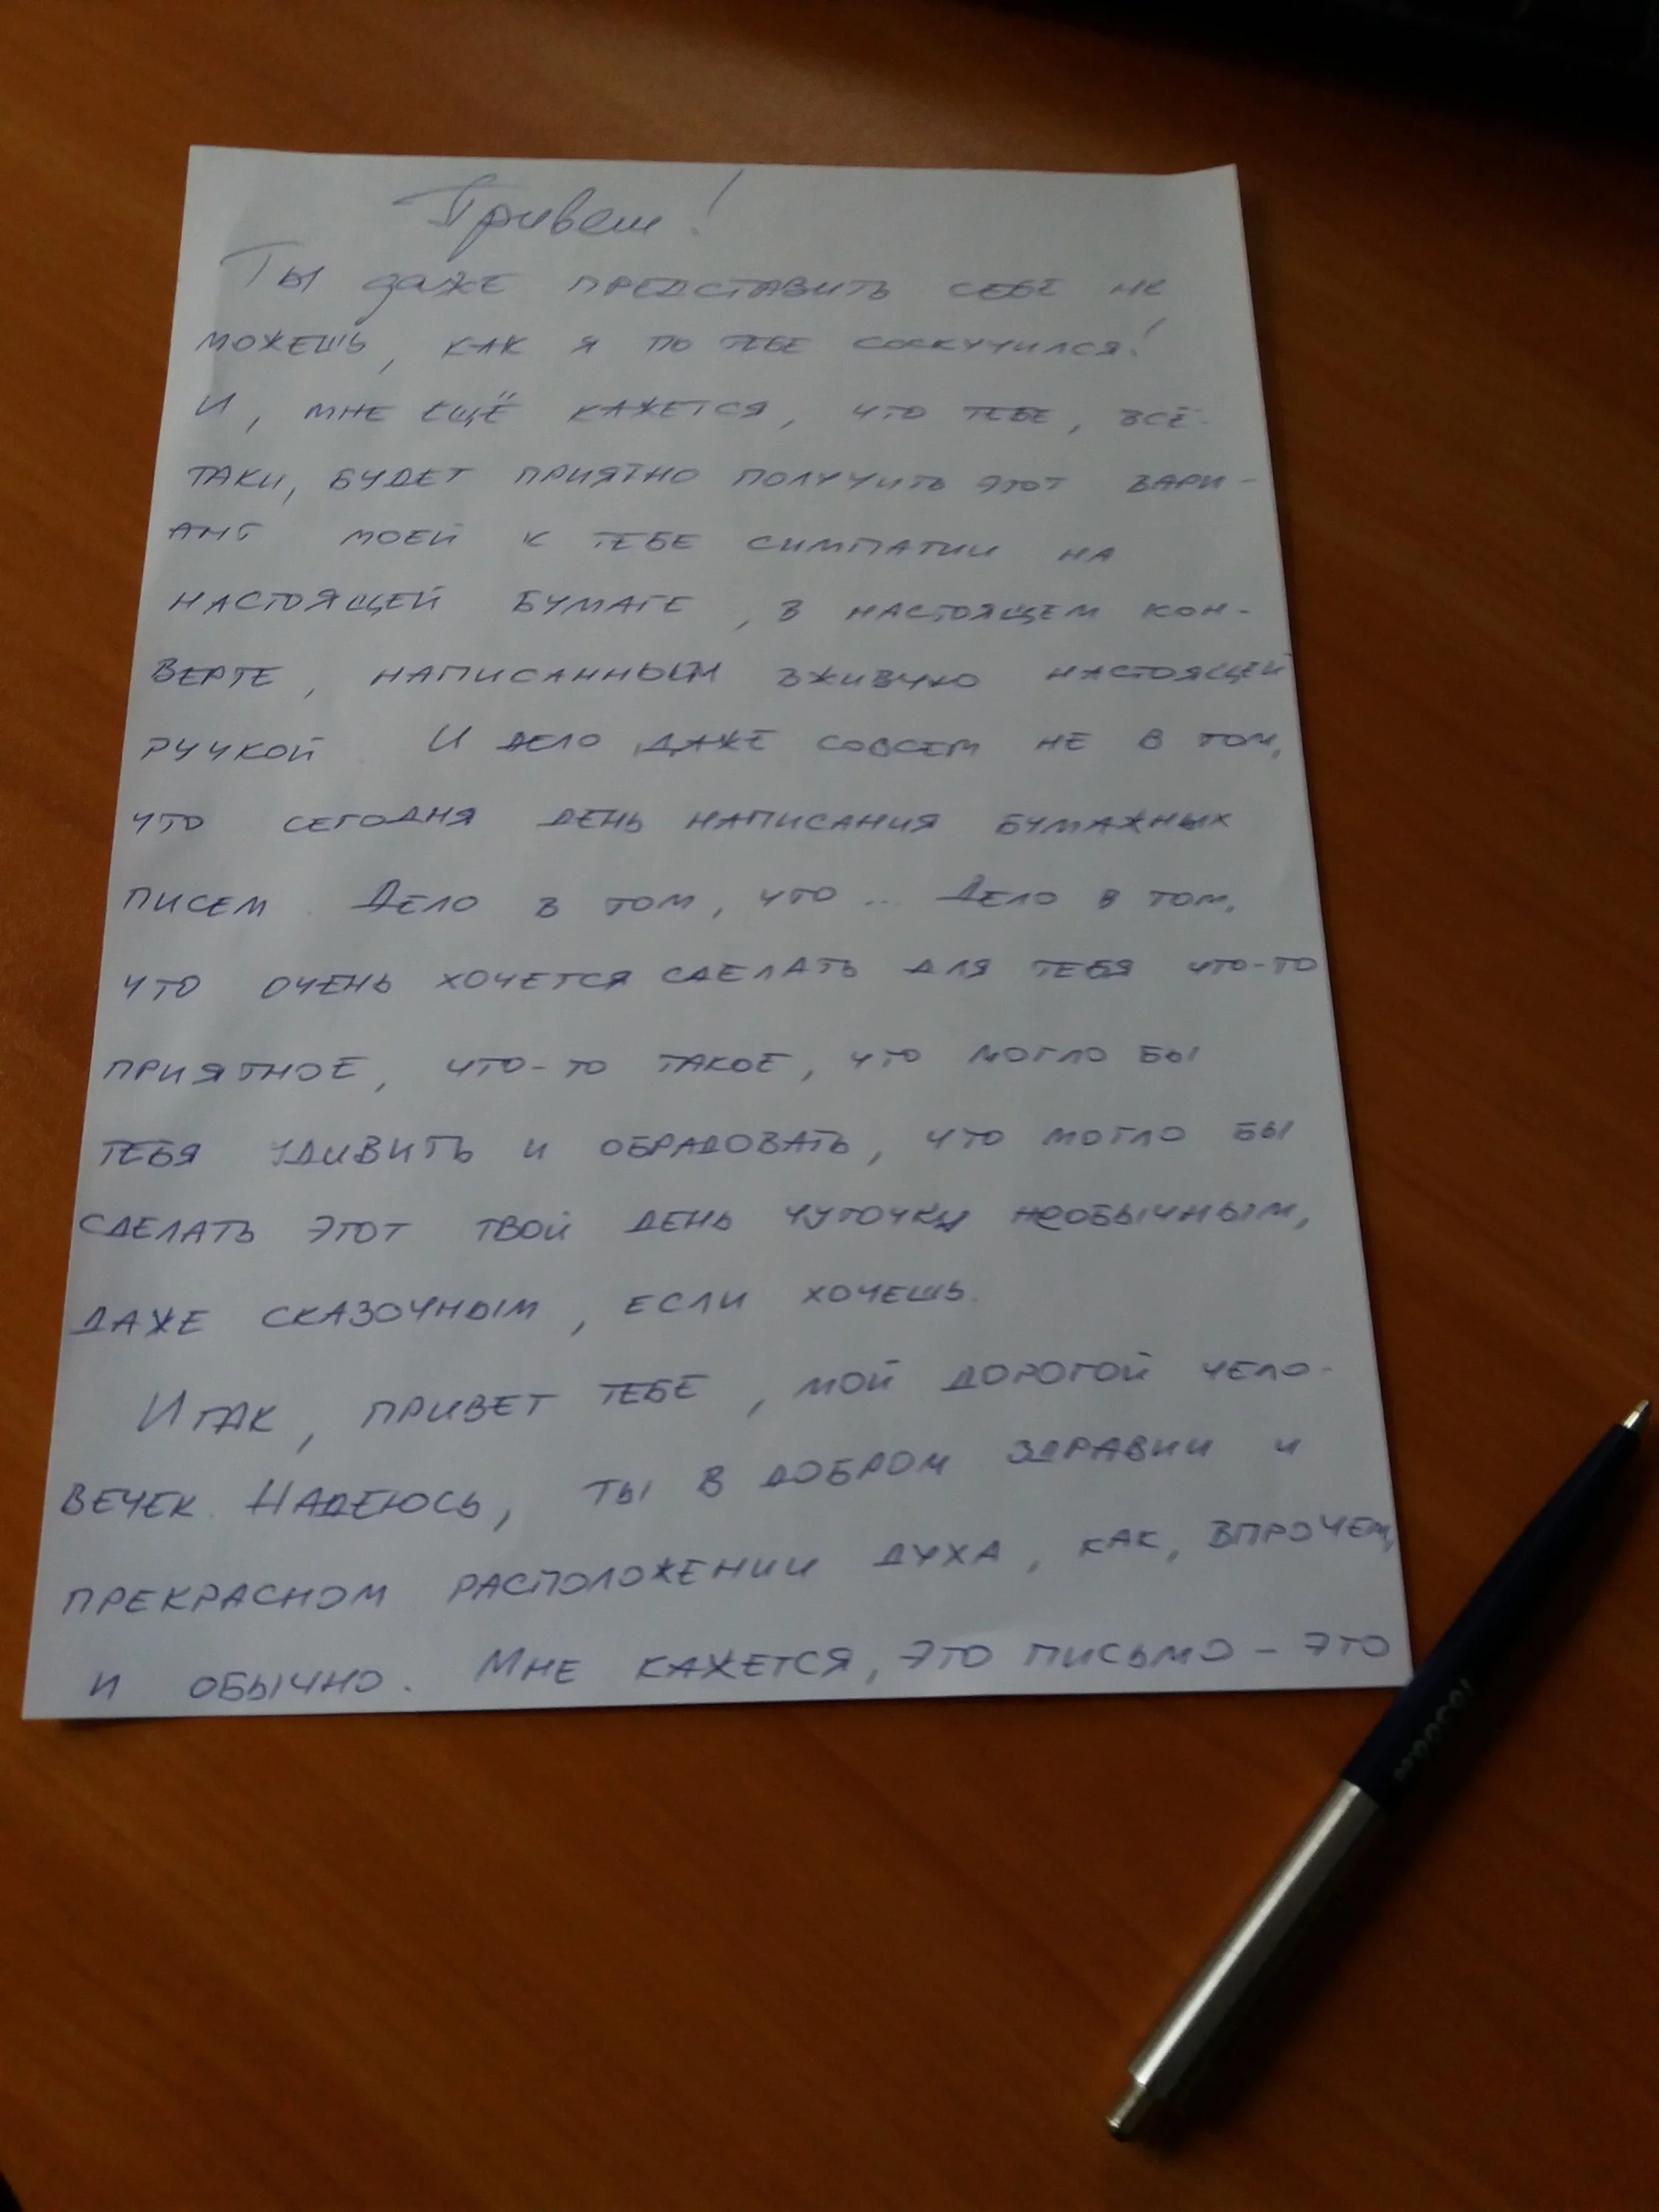 Привет!
Ты даже представить себе не
можешь, как я по тебе соскучился!
И, мне ещё кажется, что тебе, всё-
таки, будет приятно получить этот вари-
ант моей к тебе симпатии на
настоящей бумаге, в настоящем кон-
верте, написанным вживую настоящей
ручкой. И дело даже совсем не в том,
что сегодня день написания бумажных
писем. Дело в том, что... Дело в том,
что очень хочется сделать для тебя что-то
приятное, что-то такое, что могло бы
тебя удивить и обрадовать, что могло бы
сделать этот твой день чуточку необычным,
даже сказочным, если хочешь.
Итак, привет тебе, мой дорогой чело-
вечек. Надеюсь, ты в добром здравии и
прекрасном расположении духа, как, впрочем,
и обычно. Мне кажется, это письмо - это